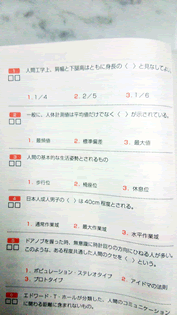 1 人間工学上、肩幅と下腿高はともに身長の〈 〉と見なしてよ
1. 1／4　2. 2／5　3. 1／6
2 一般に、人体計測値は平均値だけでなく〈 〉が示されている。
1. 最頻値　2. 標準偏差　3. 最大値
3 人間の基本的な生活姿勢とされるもの
1. 歩行位　2. 椅座位　3. 休息位
4 日本人成人男子の〈 〉は40cm 程度とされる。
1. 通常作業域　2. 最大作業域　3. 水平作業域
5 ドアノブを握った時、無意識に時計回りの方向にひねる人が多い。
このような、ある程度共通した人間のクセを〈 〉という。
1. ポピュレーション・ステレオタイプ　2. アイドマの法則
3. プロトタイプ
6 エドワード・T・ホールが分類した、人間のコミュニケーション
に関わる距離に含まれないもの。